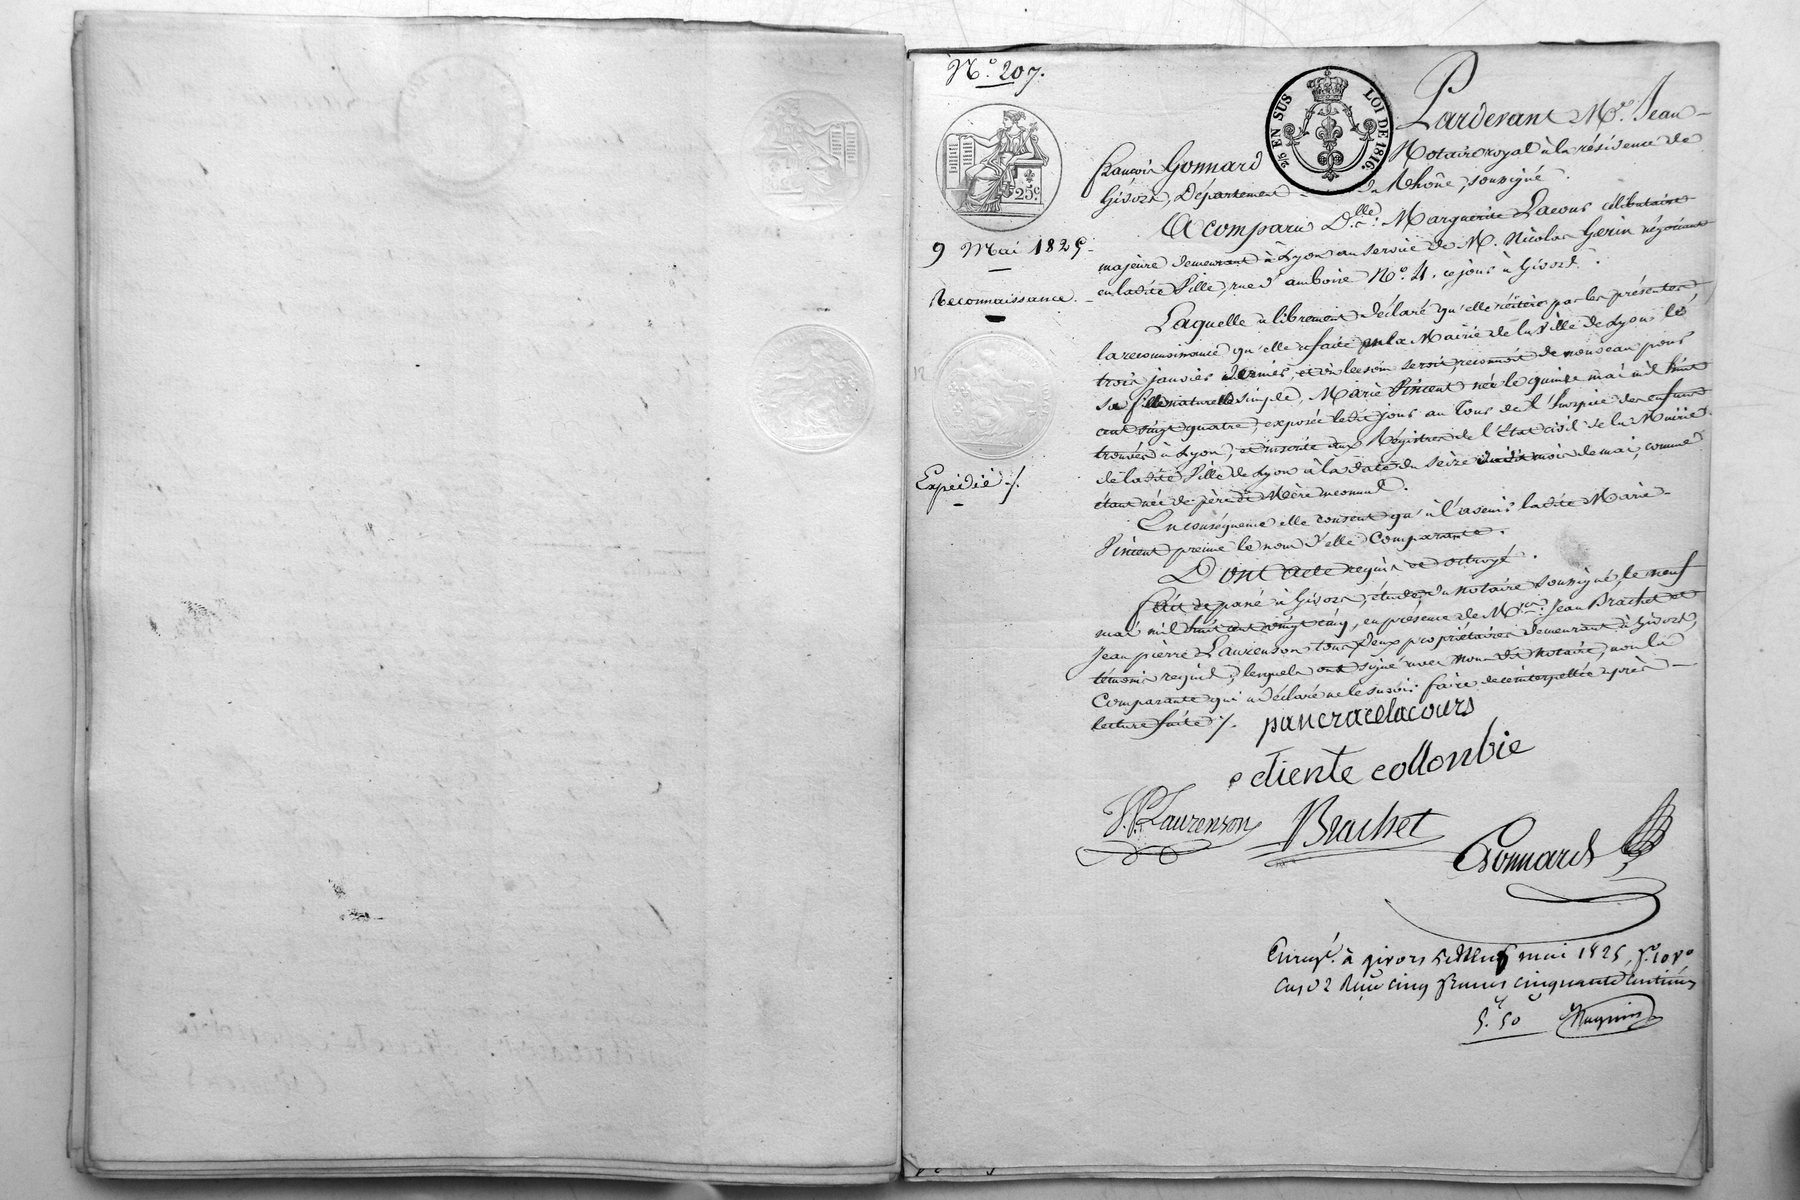 N.º 207.
2/5 EN SUS LOI DE 1816.
25.c
9 Mai 1825
Reconnaissance.
Expédié /.
Pardevant M.e Jean
françois Gonnard Notaire royal à la résidence de
Givors, Département du Rhône, soussigné.
A comparu D.lle Marguerite Lacour célibataire
majeure demeurant à Lyon au service de M. Nicolas Gerin négociant
en ladite Ville, rue d'amboise N.º 4. ce jour à Givors.
Laquelle a librement déclaré qu'elle réitère par les présentes
la reconnoissance qu'elle a faite en la Mairie de la Ville de Lyon le
trois janvier dernier, et en besoin seroit, reconnoit de nouveau pour
sa fille naturelle simple, Marie Vincent née le quinze mai mil huit
cent vingt quatre, exposée ledit jour au Tour de l'hospice des enfans
trouvés à Lyon, et inscrite aux Régistres de l'Etat civil de la Mairie
de ladite Ville de Lyon à la date du seize dudit mois de mai, comme
étant née de père et Mère inconnus.
En conséquence elle consent qu'à l'avenir ladite Marie
Vincent prenne le nom d'elle Comparante.
Dont acte requis et octroyé.
fait et passé à Givors, étude du notaire soussigné, le neuf
mai mil huit cent vingt cinq, en présence de M.rs Jean Brachet et
Jean pierre Laurenson tous deux propriétaires demeurant à Givors,
témoins requis, lesquels ont signé avec nous dit notaire, non la
Comparante qui a déclaré ne le savoir faire de ce interpellée après
lecture faite /.
pancrace lacours
etiente collonbie
J. P. Laurenson Brachet
Gonnard
Enreg.é à givors le neuf mai 1825, f.º 10 v.º
case 2 Reçu cinq francs cinquante centimes
5.f 50